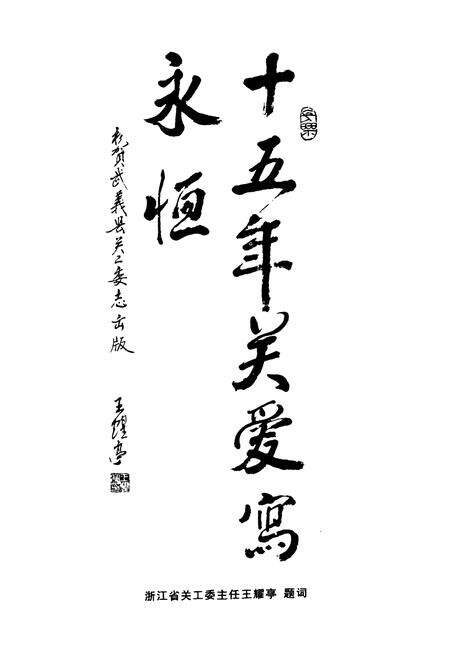 十五年关爱寫
永恒
祝贺武義县关工委志出版
王耀亭
浙江省关工委主任王耀亭 题词